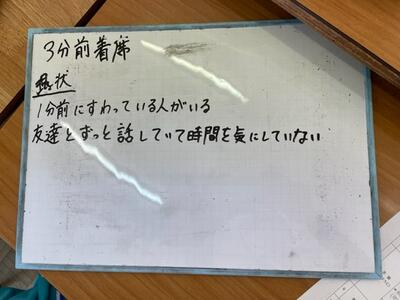 3分前着席
現状
1分前にすわっている人がいる
友達とずっと話していて時間を気にしていない